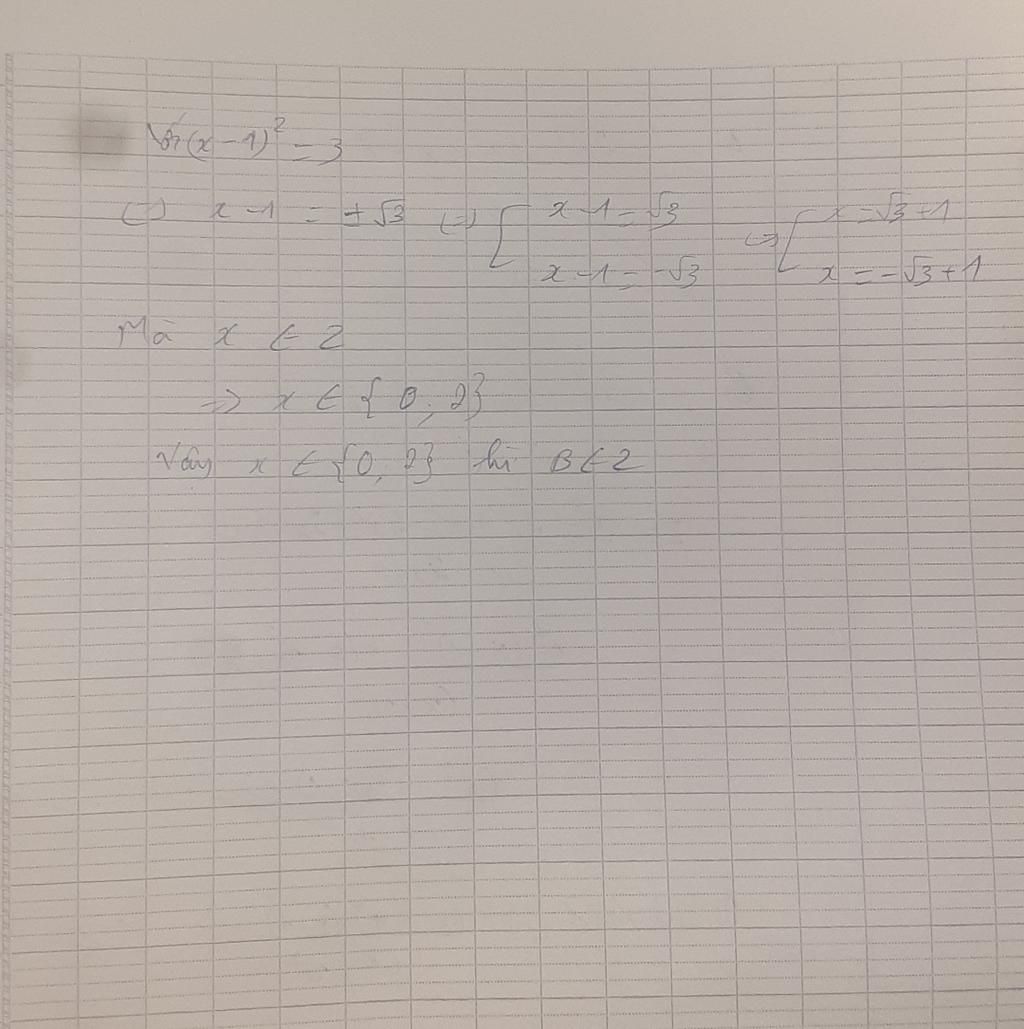 Với (x-1)² = 3
(=) x-1 = ±√3 (=) [ x-1 = √3 (=) [ x = √3+1
x-1 = -√3 x = -√3+1
Mà x ∈ Z
=> x ∈ {0, 2}
Vậy x ∈ {0, 2} thì B ∈ Z